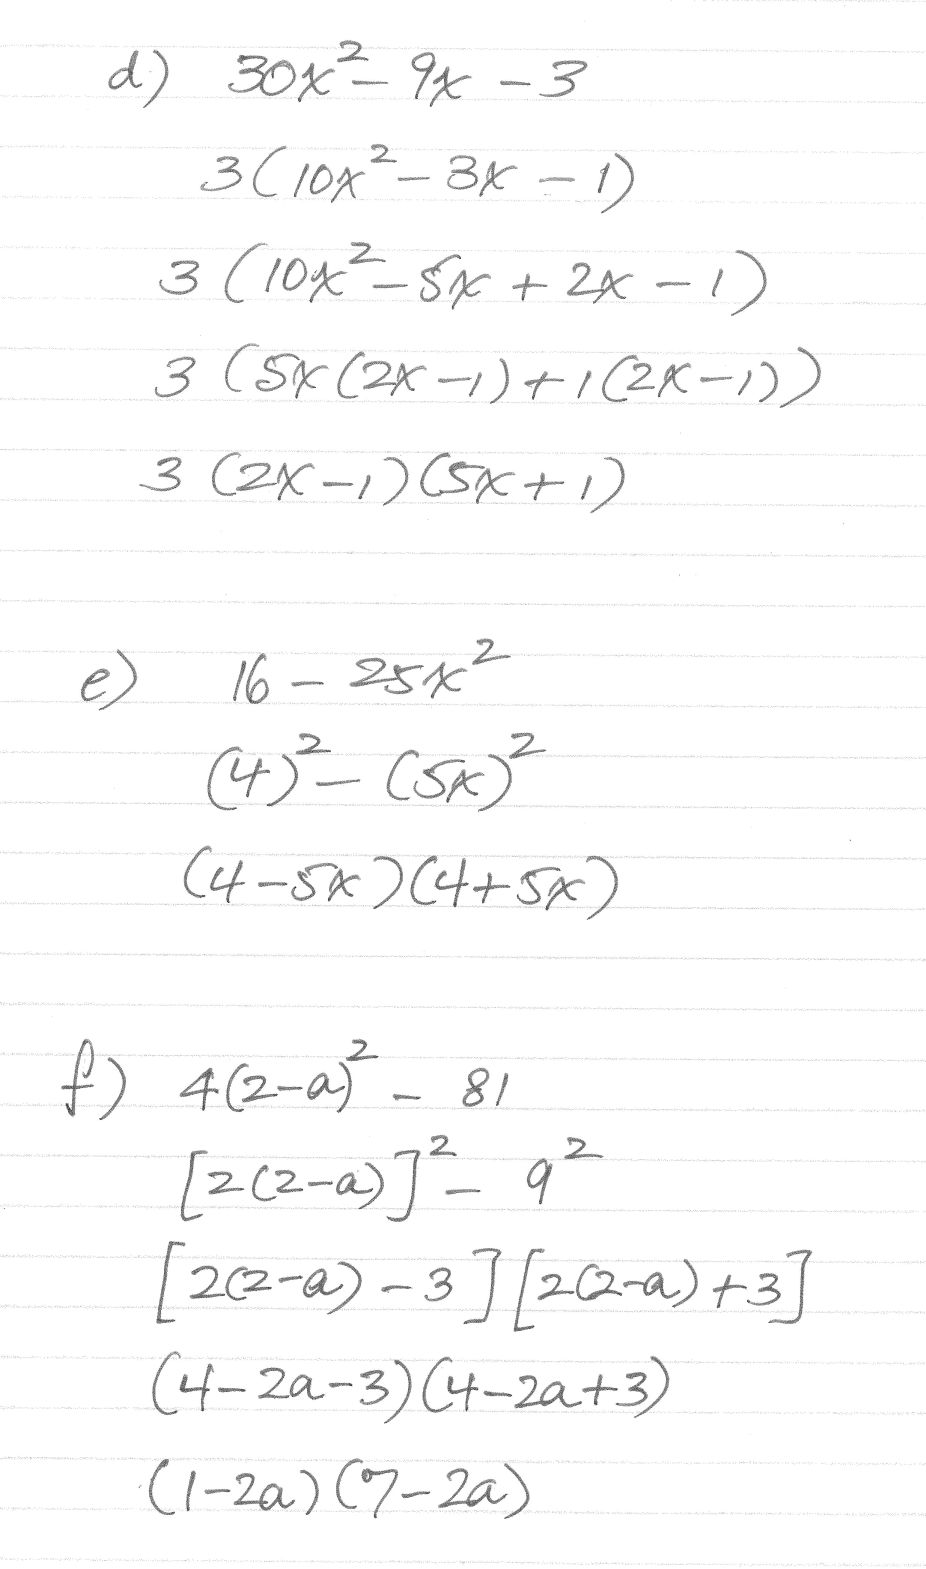 d) 30x² - 9x - 3
3(10x² - 3x - 1)
3 (10x² - 5x + 2x - 1)
3 (5x(2x-1)+1(2x-1))
3 (2x-1)(5x+1)
e) 16 - 25x²
(4)² - (5x)²
(4-5x)(4+5x)
f) 4(2-a)² - 81
[2(2-a)]² - 9²
[2(2-a) - 3][2(2-a)+3]
(4-2a-3)(4-2a+3)
(1-2a)(7-2a)